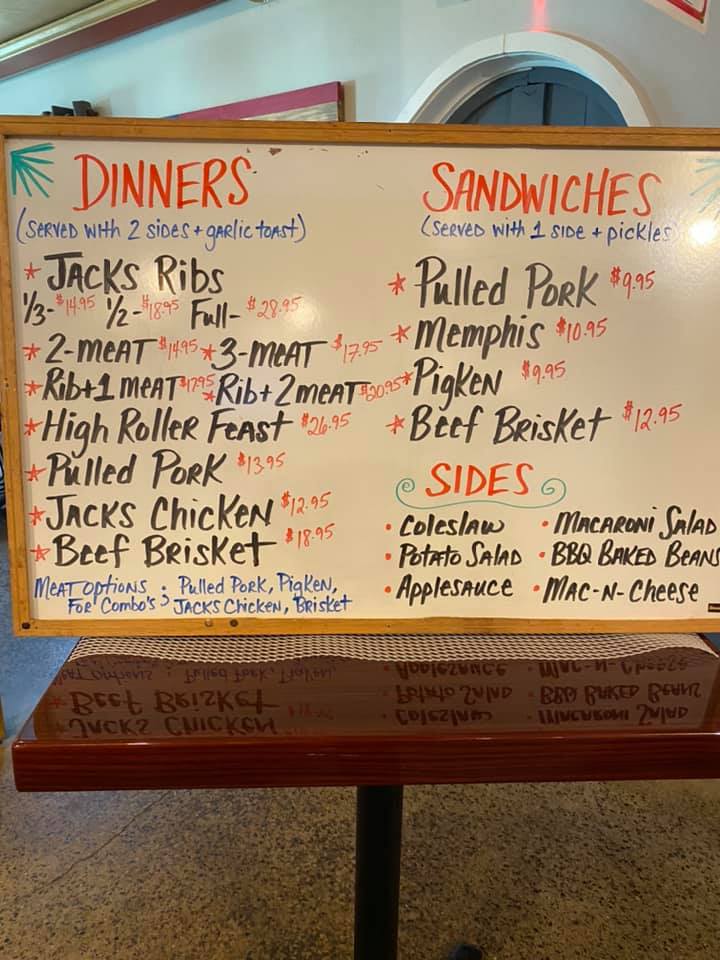 DINNERS
(SERVED WITH 2 SIDES + GARLIC TOAST)
* JACKS RIBS
1/3- $14.95 1/2- $18.95 Full- $28.95
* 2-MEAT $14.95 * 3-MEAT $17.95
* Rib + 1 MEAT $17.95 * Rib + 2 MEAT $20.95
* High Roller Feast $26.95
* Pulled Pork $13.95
* JACKS Chicken $12.95
* Beef Brisket $18.95
MEAT OPTIONS : Pulled Pork, Pigken,
For Combo's ; JACKS Chicken, Brisket
SANDWICHES
(SERVED WITH 1 SIDE + pickles
* Pulled Pork $9.95
* Memphis $10.95
* Pigken $9.95
* Beef Brisket $12.95
SIDES
• Coleslaw • Macaroni Salad
• Potato Salad • BBQ Baked Beans
• Applesauce • Mac-N-Cheese